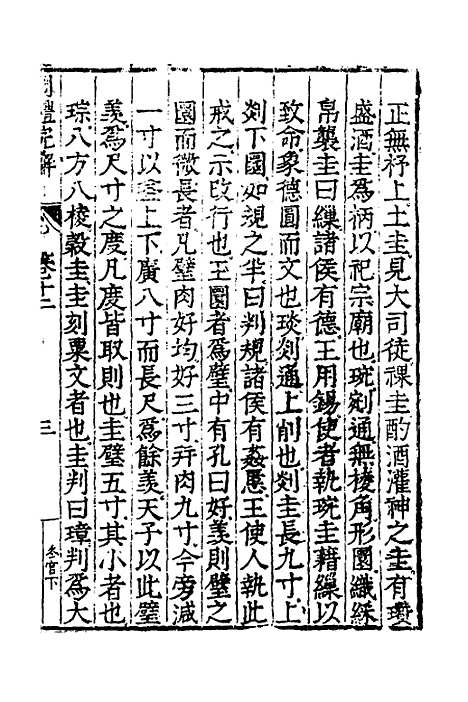 正無杼上土圭見大司徒祼圭酌酒灌神之圭有瓚
盛酒圭爲柄以祀宗廟也琬剜通無棱角形圜纖綵
帛襲圭曰繅諸侯有德王用錫使者執琬圭藉繅以
致命象德圓而文也琰剡通上削也剡圭長九寸上
剡下圜如規之半曰判規諸侯有姦慝王使人執此
戒之示改行也玉圜者爲璧中有孔曰好羨則璧之
圜而微長者凡璧肉好均好三寸幷肉九寸今旁減
一寸以益上下廣八寸而長尺爲餘羨天子以此璧
羨爲尺寸之度凡度皆取則也圭璧五寸其小者也
琮八方八棱穀圭圭刻粟文者也圭判曰璋判爲大
周禮完解 卷十二 三 冬官下